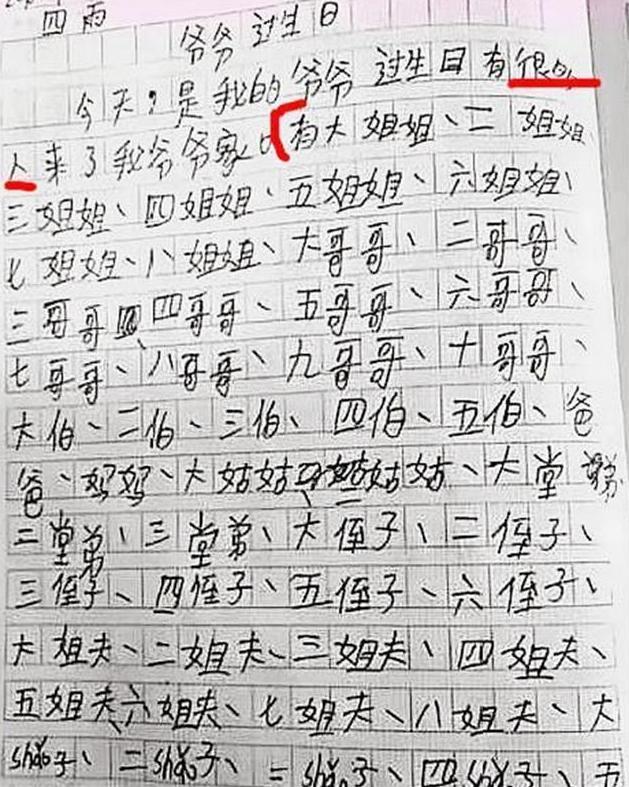 四雨
爷爷过生日
今天，是我的爷爷过生日有很的
人来了我爷爷家。有大姐姐、二姐姐、
三姐姐、四姐姐、五姐姐、六姐姐、
七姐姐、八姐姐、大哥哥、二哥哥、
三哥哥、四哥哥、五哥哥、六哥哥、
七哥哥、八哥哥、九哥哥、十哥哥、
大伯、二伯、三伯、四伯、五伯、爸
爸、妈妈、大姑姑、二姑姑、大堂弟
二堂弟、三堂弟、大侄子、二侄子、
三侄子、四侄子、五侄子、六侄子、
大姐夫、二姐夫、三姐夫、四姐夫、
五姐夫、六姐夫、七姐夫、八姐夫、大
shǎo子、二shǎo子、三shǎo子、四shǎo子、五